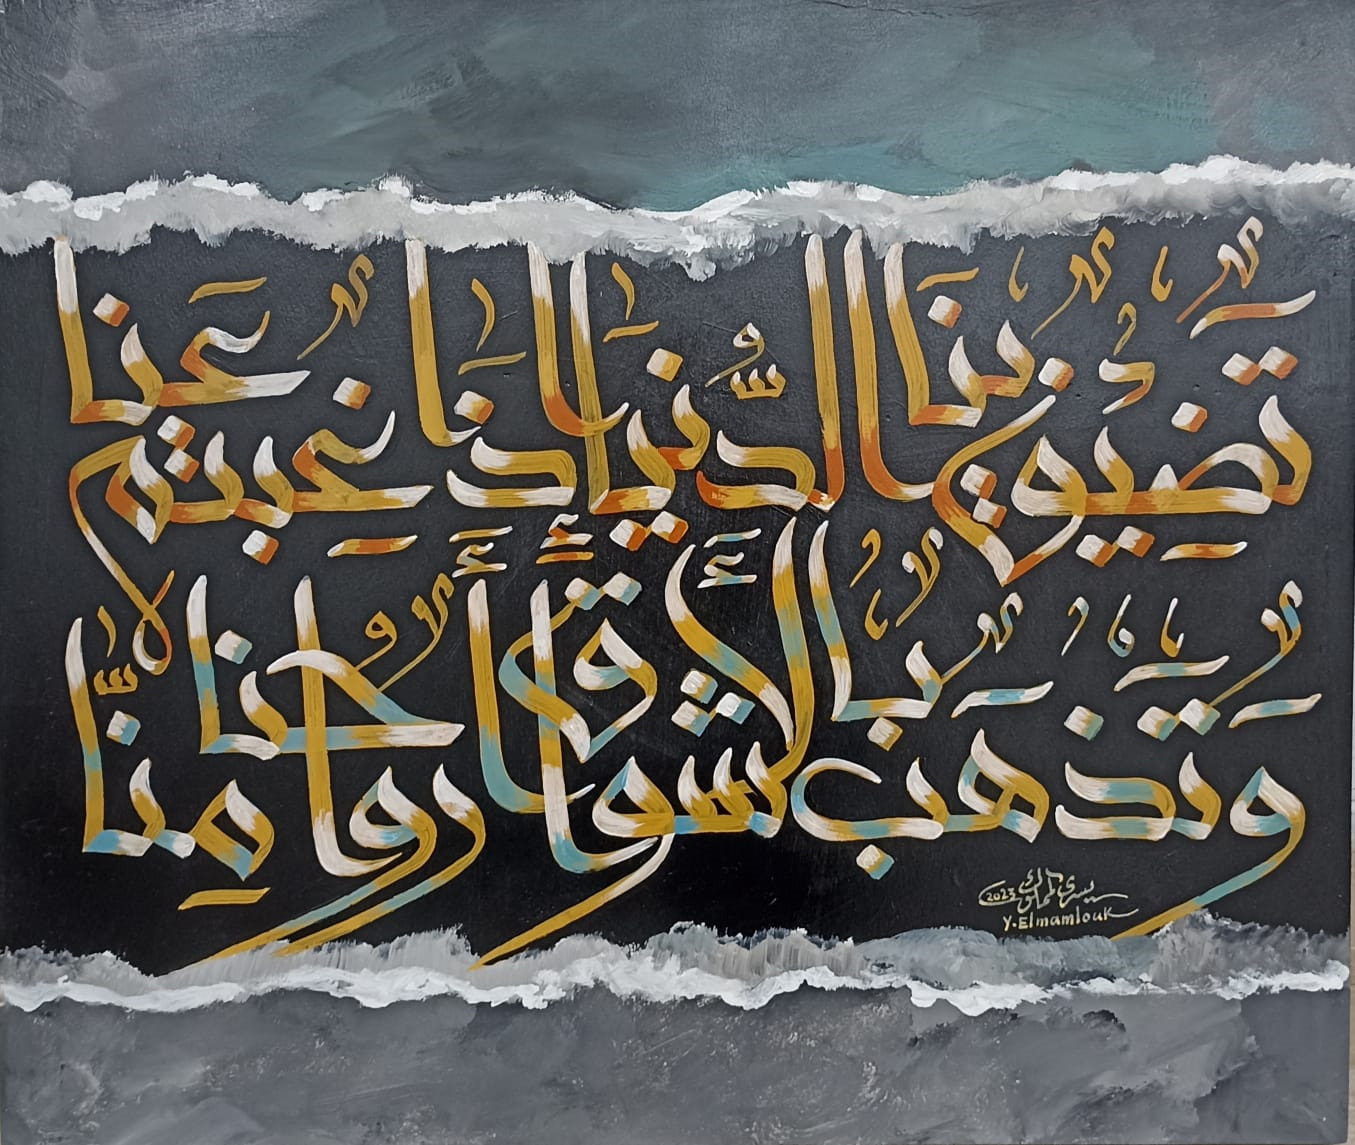 تضيق بنا الدنيا إذا غبتم عنا
وتذهب بالأشواق أرواحنا منا
يسري المملوك 2023
Y.Elmamlouk